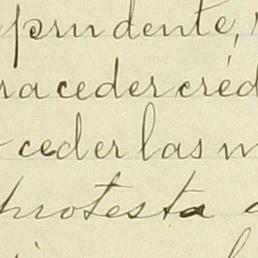 prudente,
ra ceder créd
ceder las m
protesta